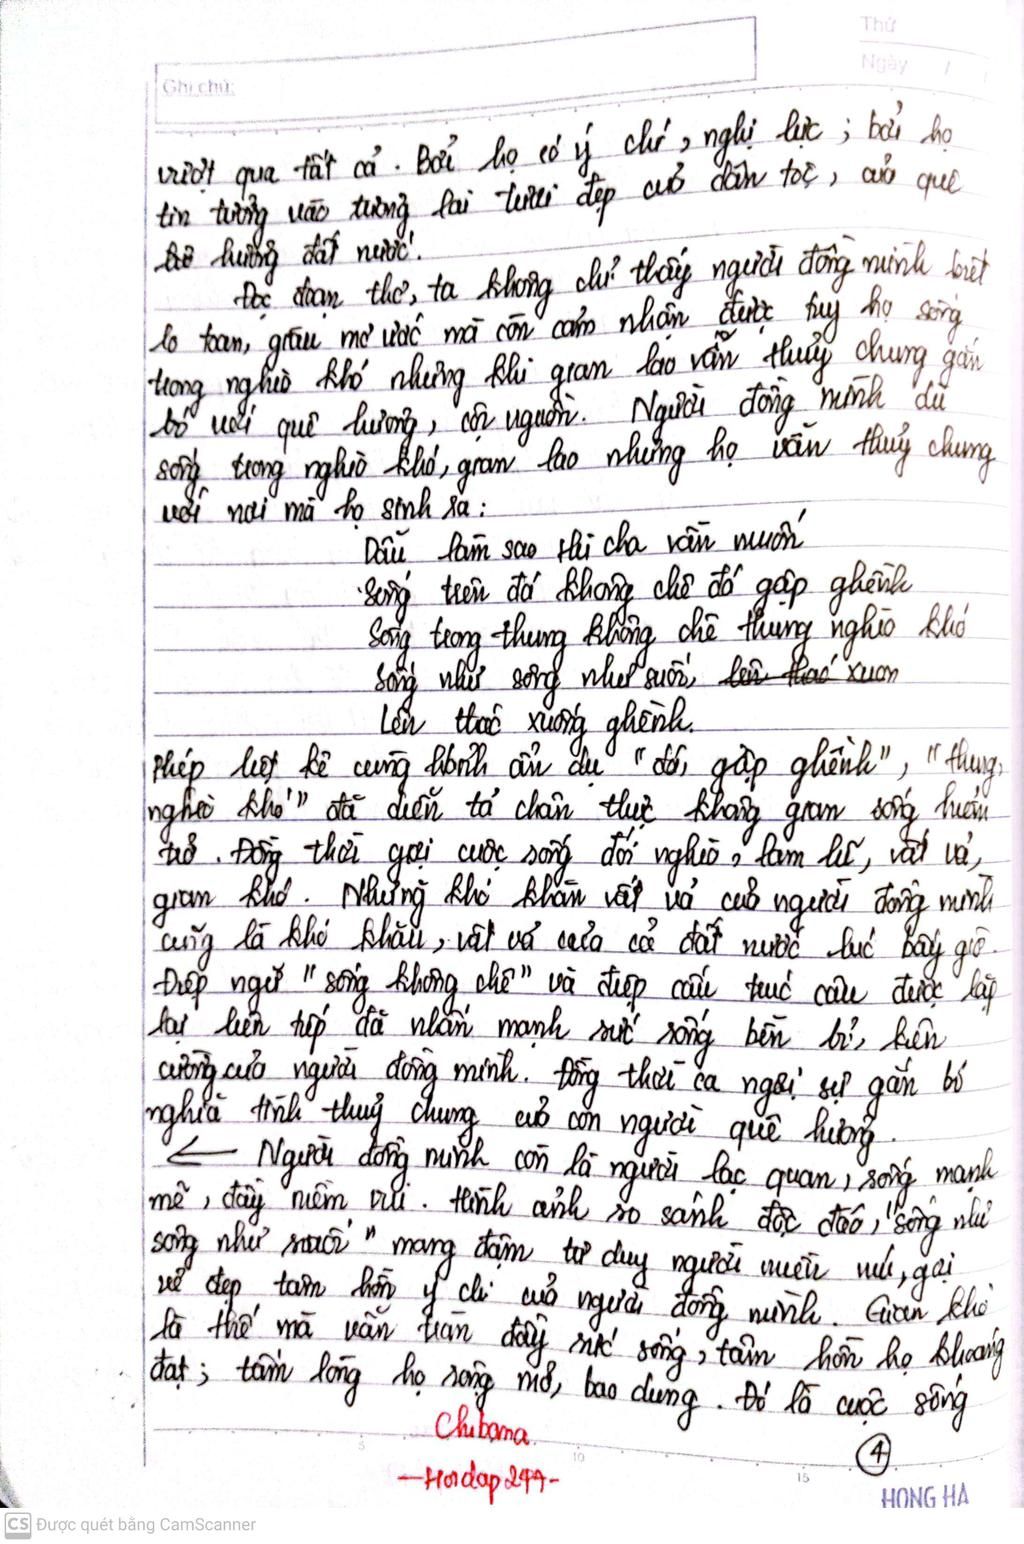 Thứ
Ngày / /
Ghi chú:
vượt qua tất cả. Bởi họ có ý chí, nghị lực; bởi họ
tin tưởng vào tương lai tươi đẹp của dân tộc, của quê
hương đất nước.
Đọc đoạn thơ, ta không chỉ thấy người đồng mình biết
lo toan, giàu mơ ước mà còn cảm nhận được tuy họ sống
trong nghèo khó nhưng khi gian lao vẫn thuỷ chung gắn
bó với quê hương, cội nguồn. Người đồng mình dù
sống trong nghèo khó, gian lao nhưng họ vẫn thuỷ chung
với nơi mà họ sinh ra:
Dẫu làm sao thì cha vẫn muốn
Sống trên đá không chê đá gập ghềnh
Sống trong thung không chê thung nghèo khó
Sống như sông như suối, lên thác xuon
Lên thác xuống ghềnh.
Phép liệt kê cùng hình ẩn dụ "đá gập ghềnh", "thung
nghèo khó" đã diễn tả chân thực không gian sống hiểm
trở. Đồng thời gợi cuộc sống đói nghèo, lam lũ, vất vả,
gian khó. Những khó khăn vất vả của người đồng mình
cũng là khó khăn, vất vả của cả đất nước lúc bấy giờ.
Điệp ngữ "sống không chê" và điệp cấu trúc câu được lặp
lại liên tiếp đã nhấn mạnh sức sống bền bỉ, kiên
cường của người đồng mình. Đồng thời ca ngợi sự gắn bó
nghĩa tình thuỷ chung của con người quê hương.
Người đồng mình còn là người lạc quan, sống mạnh
mẽ, đầy niềm vui. Hình ảnh so sánh độc đáo, "sống như
sông như suối" mang đậm tư duy người miền núi, gợi
vẻ đẹp tâm hồn ý chí của người đồng mình. Gian khó
là thế mà vẫn tràn đầy sức sống, tâm hồn họ khoáng
đạt; tấm lòng họ rộng mở, bao dung. Đó là cuộc sống
Chibama
-Hoidap247-
4
5 10 15
HONG HA
CS Được quét bằng CamScanner